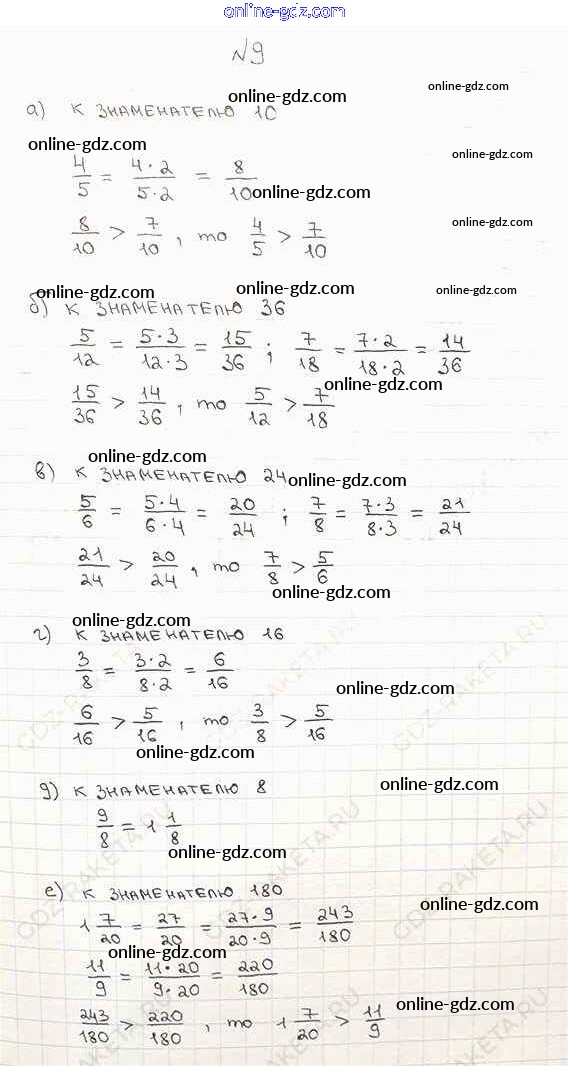 online-gdz.com
№9
online-gdz.com
а) к знаменателю 10
online-gdz.com
online-gdz.com
online-gdz.com
4/5 = 4·2/5·2 = 8/10
online-gdz.com
online-gdz.com
8/10 > 7/10, то 4/5 > 7/10
online-gdz.com
online-gdz.com
online-gdz.com
б) к знаменателю 36
5/12 = 5·3/12·3 = 15/36; 7/18 = 7·2/18·2 = 14/36
online-gdz.com
15/36 > 14/36, то 5/12 > 7/18
online-gdz.com
в) к знаменателю 24
online-gdz.com
5/6 = 5·4/6·4 = 20/24; 7/8 = 7·3/8·3 = 21/24
21/24 > 20/24, то 7/8 > 5/6
online-gdz.com
online-gdz.com
г) к знаменателю 16
3/8 = 3·2/8·2 = 6/16
online-gdz.com
6/16 > 5/16, то 3/8 > 5/16
online-gdz.com
online-gdz.com
д) к знаменателю 8
9/8 = 1 1/8
online-gdz.com
е) к знаменателю 180
online-gdz.com
1 7/20 = 27/20 = 27·9/20·9 = 243/180
online-gdz.com
11/9 = 11·20/9·20 = 220/180
online-gdz.com
243/180 > 220/180, то 1 7/20 > 11/9
GDZ-RAKETA.RU
GDZ-RAKETA.RU
GDZ-RAKETA.RU
GDZ-RAKETA.RU